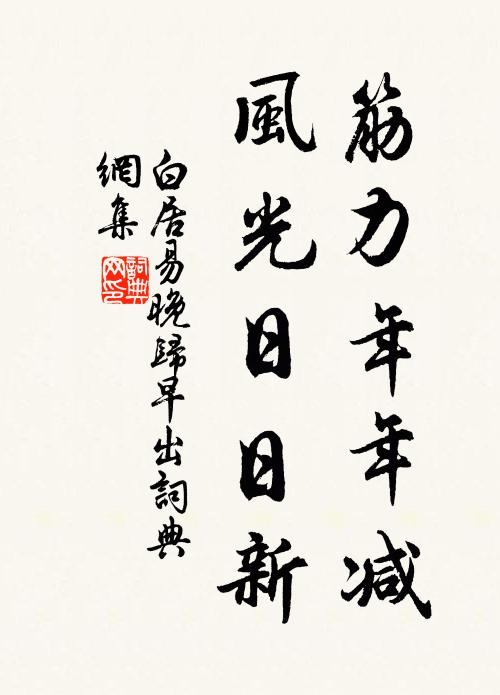 筋力年年减
風光日日新
白居易晚歸早出詞典
網集
詞典网印